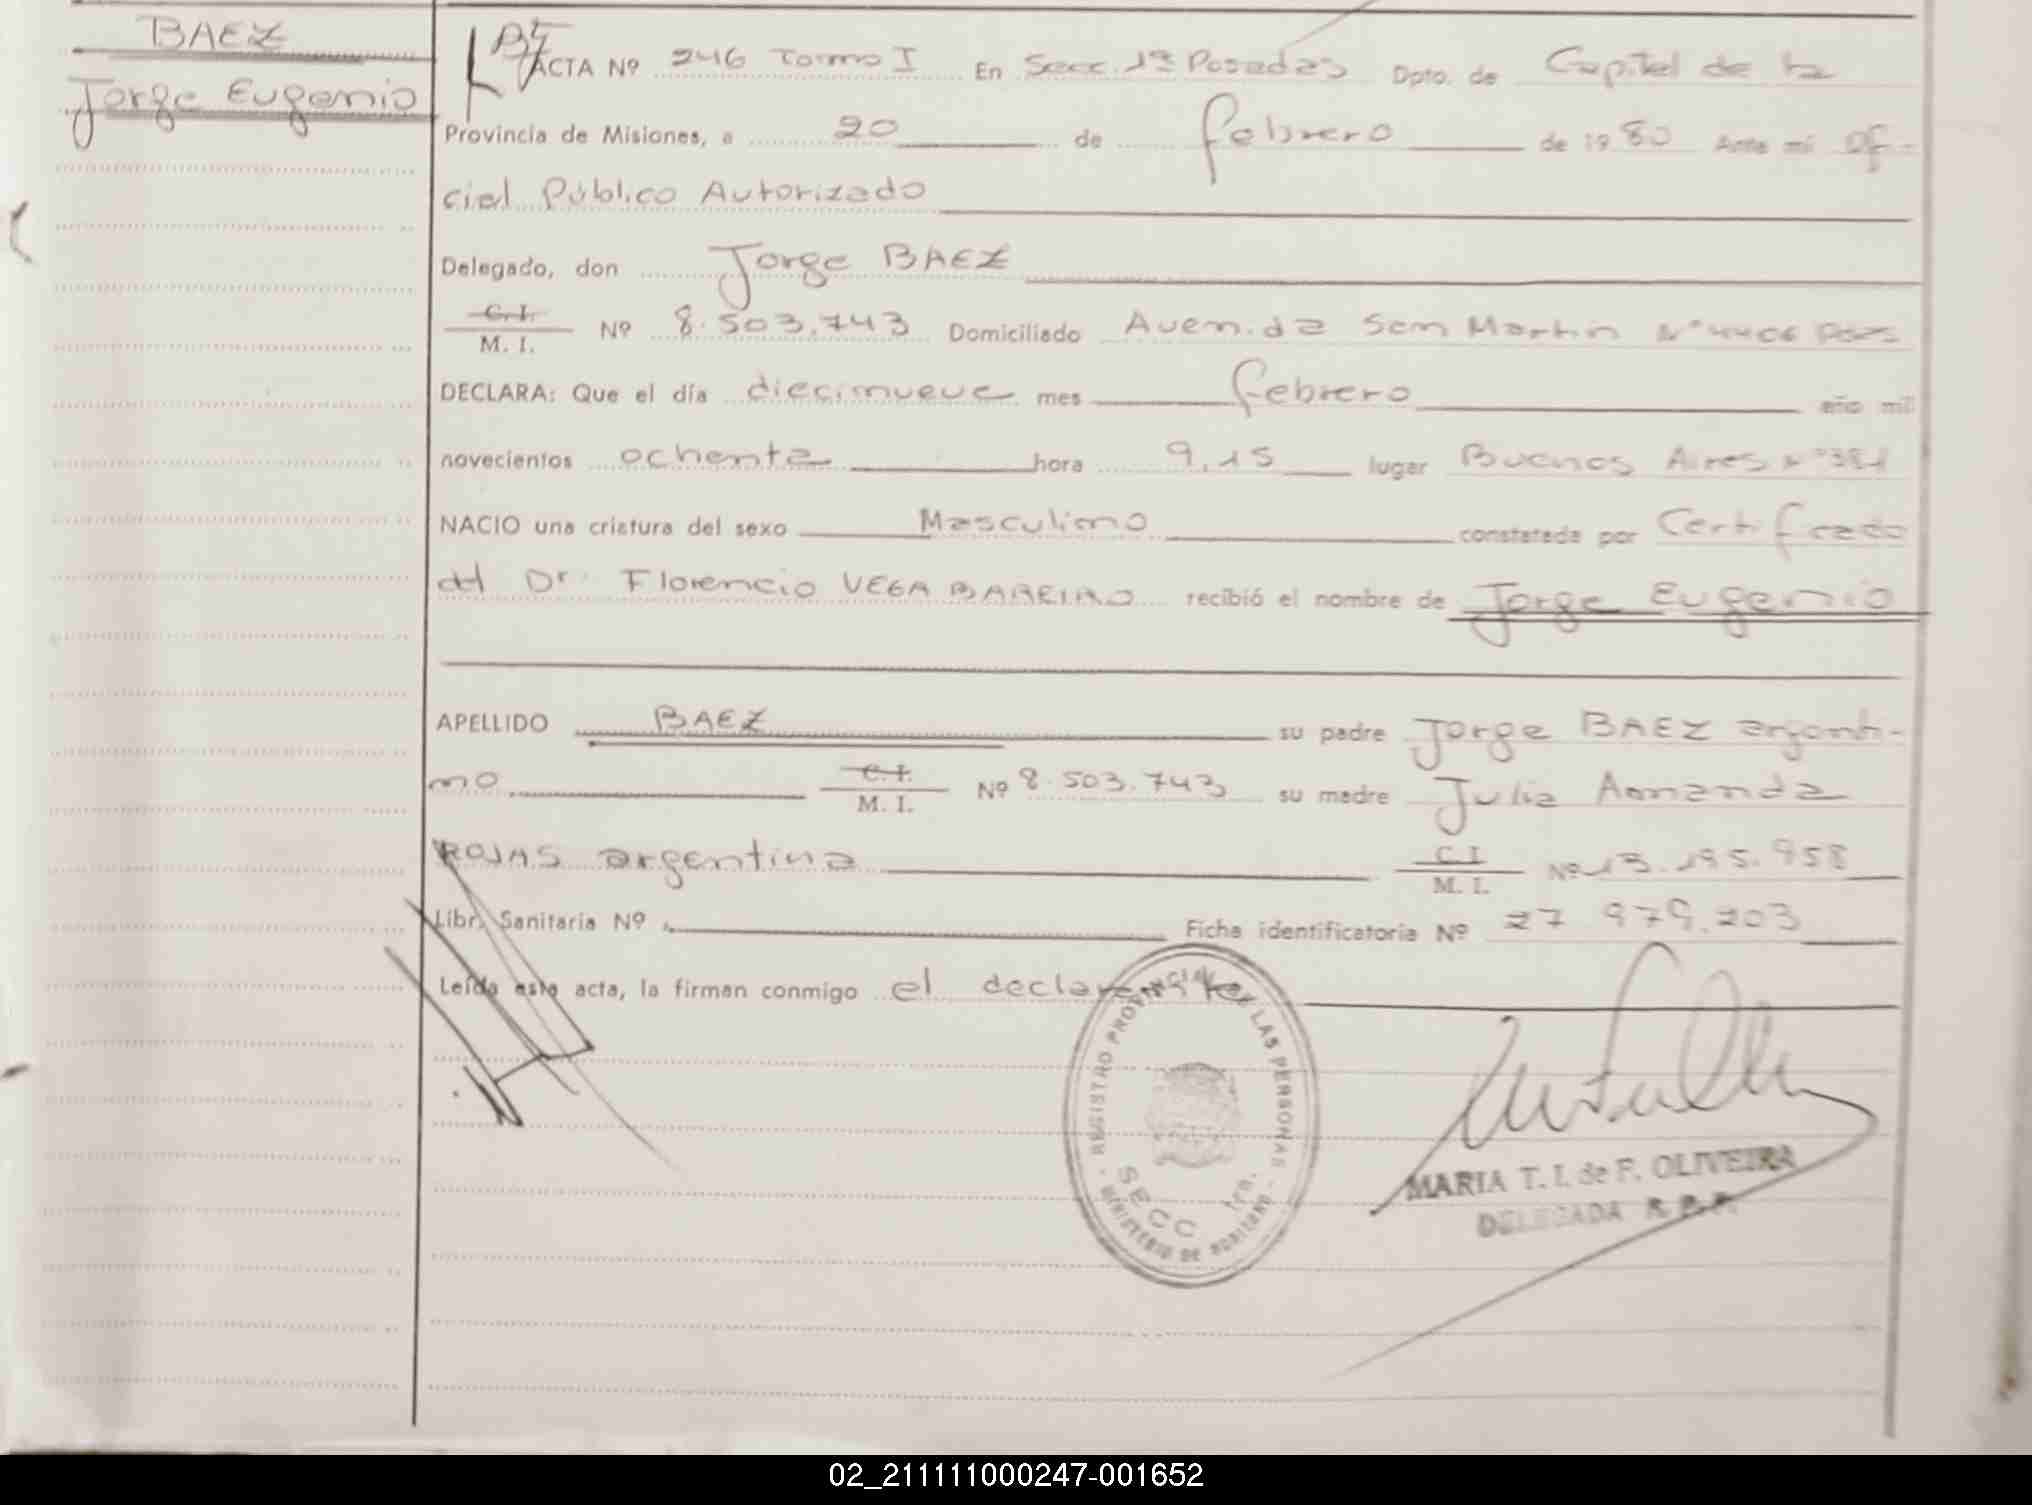 BAEZ
Jorge Eugenio
ACTA Nº 246 Tomo I En Secc. 1ª Posadas Dpto. de Capital de la
Provincia de Misiones, a 20 de febrero de 1980 Ante mí Ofi-
cial Público Autorizado
Delegado, don Jorge BAEZ
C. I.
M. I. Nº 8.503.743 Domiciliado Avenida San Martín Nº 4406 Pdas
DECLARA: Que el día diecinueve mes febrero año mil
novecientos ochenta hora 9,15 lugar Buenos Aires Nº 381
NACIO una criatura del sexo Masculino constatada por Certificado
del Dr. Florencio VEGA BAREIRO recibió el nombre de Jorge Eugenio
APELLIDO BAEZ su padre Jorge BAEZ argenti-
no C. I. M. I. Nº 8.503.743 su madre Julia Amanda
ROJAS argentina C. I. M. I. Nº 13.195.958
Libr. Sanitaria Nº Ficha identificatoria Nº 27 979.203
Leída esta acta, la firman conmigo el declarante
REGISTRO PROVINCIAL DE LAS PERSONAS
SECC 1ra.
MINISTERIO DE GOBIERNO
MARIA T. I. de F. OLIVEIRA
DELEGADA R. P. P.
02_211111000247-001652